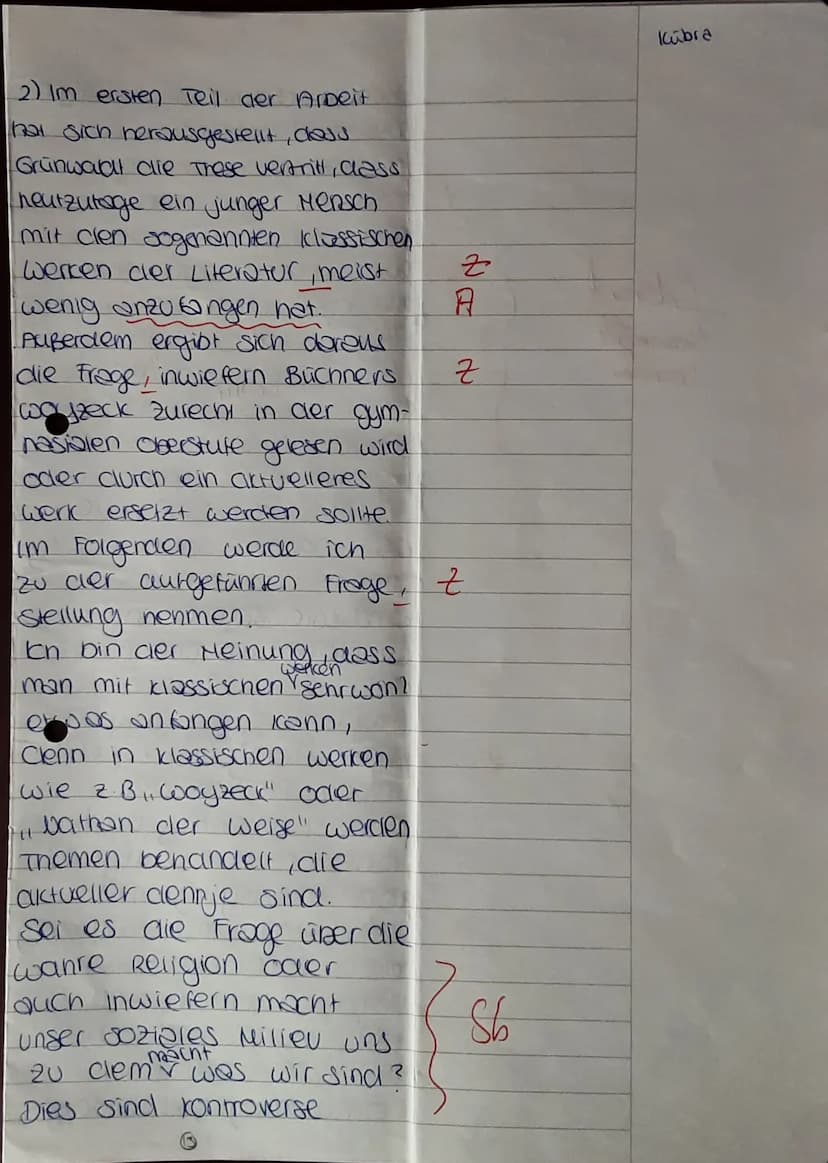 Kübra
2) Im ersten Teil der Arbeit
hat sich herausgestellt, dass
Grünwaldt die These vertritt, dass
heutzutage ein junger Mensch
mit den sogenannten klassischen
Werken der Literatur, meist Z
wenig anzufangen hat. A
Außerdem ergibt sich daraus
die Frage, inwiefern Büchners Z
Woyzeck zurecht in der gym-
nasialen Oberstufe gelesen wird
oder durch ein aktuelleres
Werk ersetzt werden sollte.
Im Folgenden werde ich
zu der aufgeführten Frage, Z
Stellung nehmen.
Ich bin der Meinung, dass
man mit klassischen Werken sehr wohl
etwas anfangen kann,
denn in klassischen Werken
wie z.B „Woyzeck" oder
„Nathan der Weise" werden
Themen behandelt, die
aktueller denn je sind.
Sei es die Frage über die
wahre Religion oder
auch inwiefern macht
unser soziales Milieu uns Sb
zu dem macht was wir sind?
Dies sind kontroverse